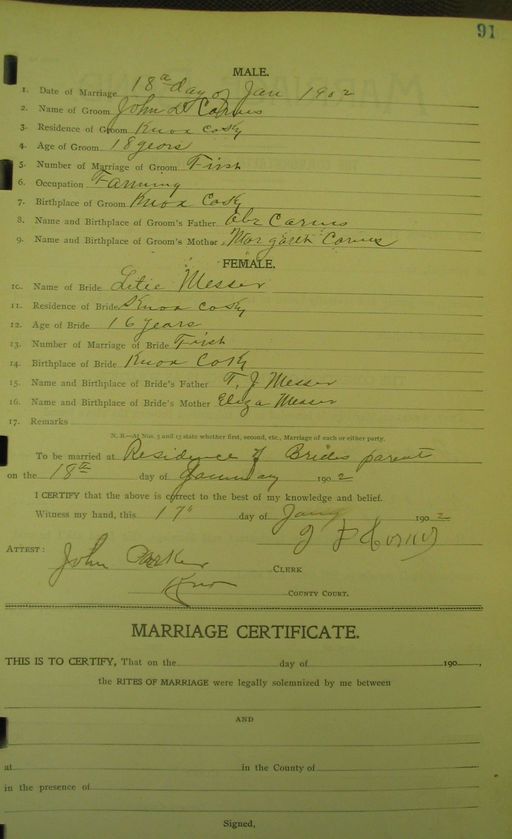 91
MALE.
1. Date of Marriage 18th day of Jan 1902
2. Name of Groom John D Carnes
3. Residence of Groom Knox Co Ky
4. Age of Groom 18 years
5. Number of Marriage of Groom First
6. Occupation Farming
7. Birthplace of Groom Knox Co Ky
8. Name and Birthplace of Groom's Father Abe Carnes
9. Name and Birthplace of Groom's Mother Margaret Carnes
FEMALE.
10. Name of Bride Letie Messer
11. Residence of Bride Knox Co Ky
12. Age of Bride 16 years
13. Number of Marriage of Bride First
14. Birthplace of Bride Knox Co Ky
15. Name and Birthplace of Bride's Father T. J Messer
16. Name and Birthplace of Bride's Mother Eliza Messer
17. Remarks
N. B.—At Nos. 5 and 13 state whether first, second, etc., Marriage of each or either party.
To be married at Residence of Brides parents
on the 18th day of January 1902
I CERTIFY that the above is correct to the best of my knowledge and belief.
Witness my hand, this 17" day of Jany 1902
ATTEST:
John Parker CLERK
Knox COUNTY COURT.
MARRIAGE CERTIFICATE.
THIS IS TO CERTIFY, That on the day of 190 ,
the RITES OF MARRIAGE were legally solemnized by me between
AND
at in the County of
in the presence of
Signed,